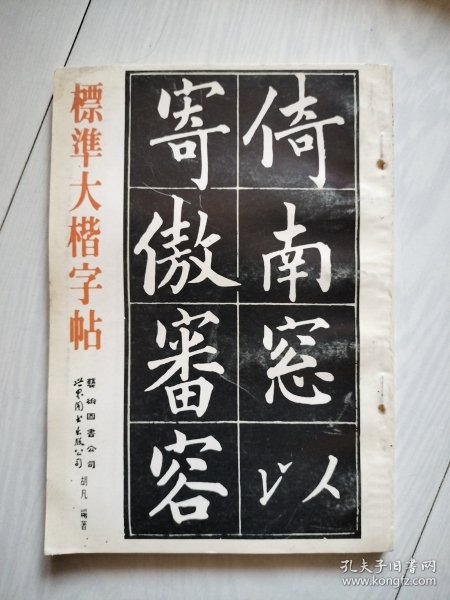 標準大楷字帖
倚南窓以
寄傲審容
藝術圖書公司
世界图书出版公司
胡凡 編著
孔夫子旧书网
www.kongfz.com